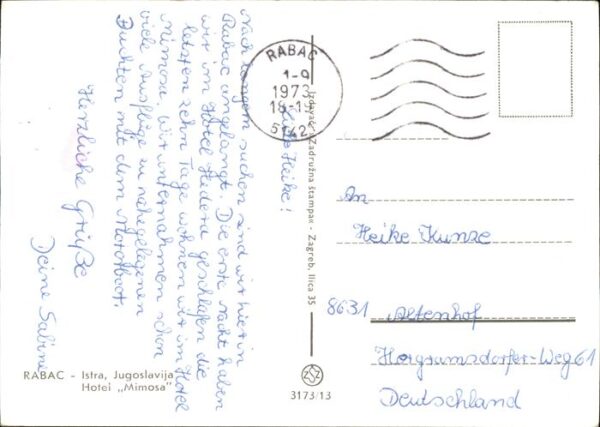 Liebe Heike!
Nach langem suchen sind wir hier in
Rabac angelangt. Die erste Nacht haben
wir im Hotel Hedera geschlafen die
letzten zehn Tage wohnen wir im Hotel
Mimosa. Wir unternahmen schon
viele Ausflüge zu nahegelegenen
Buchten mit dem Motorboot.
Herzliche Grüße
Deine Sabine
RABAC – Istra, Jugoslavija
Hotel „Mimosa"
Izdavač: Zadružna štampa - Zagreb, Ilica 35
3173/13
RABAC
1-9
1973
18-19
51423
An
Heike Kunze
8631 Altenhof
Horgramsdorfer-Weg 61
Deutschland